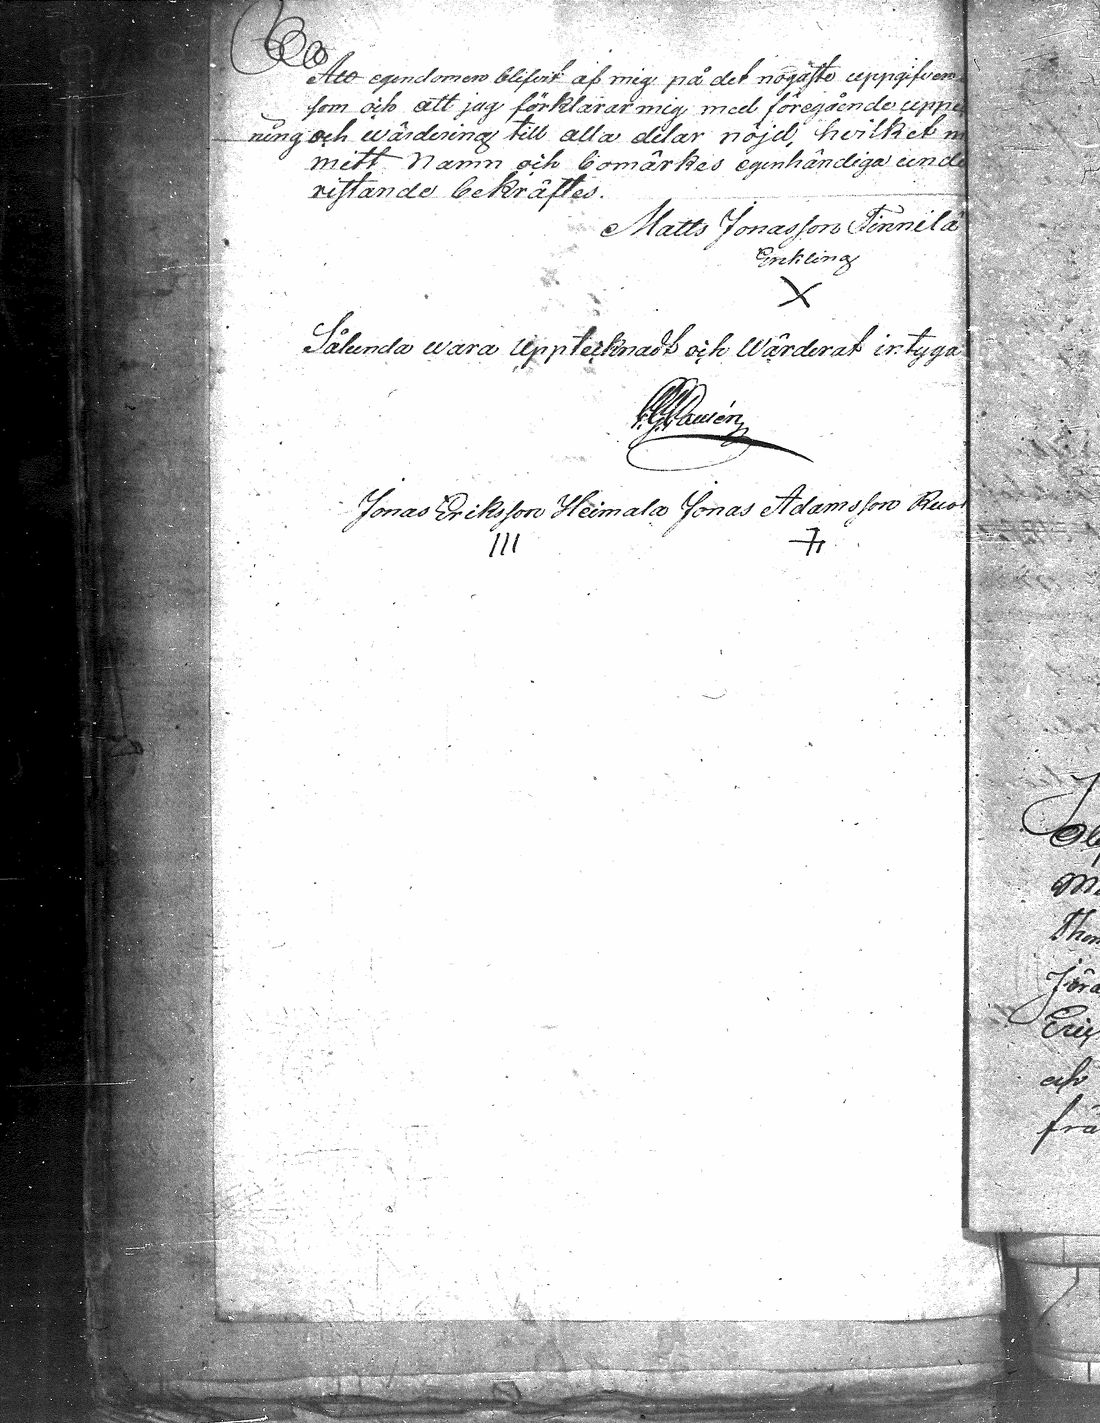 Att egendomen blifvit af mig på det nogaste uppgifven
som och att jag förklarar mig med föregående uppte
ning och wärdering till alla delar nöjd, hvilket m
mitt Namn och bomärkes egenhändiga unde
ristande bekräftes.
Matts Jonasson Finnilä
Enkling
X
Sålunda wara Upptecknadt och Wärderat intyga
Jonas Eriksson Heimala Jonas Adamsson
III
Thom
Jöra
och
frå